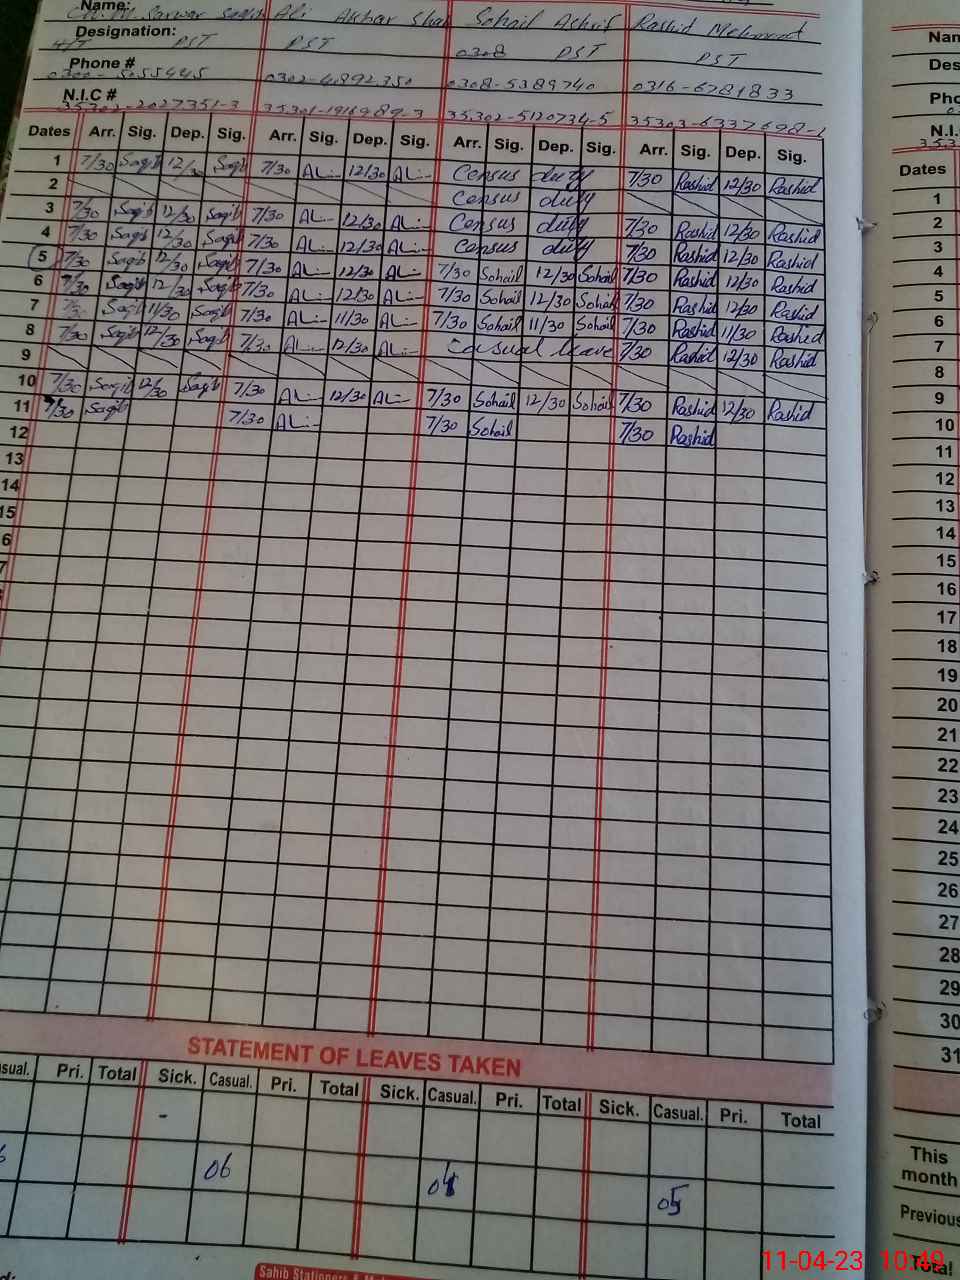 Name: Ch. M. Sarwar Saqib Ali Akbar Shah Sohail Ashraf Rashid Mehmood
Designation: H/T PST PST 0308 PST PST
Phone # 0300-5055445 0302-4892350 0308-5389740 0316-6781833
N.I.C # 35302-2027351-3 35301-1916989-3 35302-5120734-5 35303-6337698-1
Dates Arr. Sig. Dep. Sig. Arr. Sig. Dep. Sig. Arr. Sig. Dep. Sig. Arr. Sig. Dep. Sig.
1 7/30 Saqib 12/30 Saqib 7/30 Ali 12/30 Ali Census duty 7/30 Rashid 12/30 Rashid
2 Census duty
3 7/30 Saqib 12/30 Saqib 7/30 Ali 12/30 Ali Census duty 7/30 Rashid 12/30 Rashid
4 7/30 Saqib 12/30 Saqib 7/30 Ali 12/30 Ali Census duty 7/30 Rashid 12/30 Rashid
5 7/30 Saqib 12/30 Saqib 7/30 Ali 12/30 Ali 7/30 Sohail 12/30 Sohail 7/30 Rashid 12/30 Rashid
6 7/30 Saqib 12/30 Saqib 7/30 Ali 12/30 Ali 7/30 Sohail 12/30 Sohail 7/30 Rashid 12/30 Rashid
7 7/30 Saqib 11/30 Saqib 7/30 Ali 11/30 Ali 7/30 Sohail 11/30 Sohail 7/30 Rashid 11/30 Rashid
8 7/30 Saqib 12/30 Saqib 7/30 Ali 12/30 Ali Casual leave 7/30 Rashid 12/30 Rashid
9
10 7/30 Saqib 12/30 Saqib 7/30 Ali 12/30 Ali 7/30 Sohail 12/30 Sohail 7/30 Rashid 12/30 Rashid
11 7/30 Saqib 7/30 Ali 7/30 Sohail 7/30 Rashid
12
13
14
15
6
7
STATEMENT OF LEAVES TAKEN
sual. Pri. Total Sick. Casual. Pri. Total Sick. Casual. Pri. Total Sick. Casual. Pri. Total
-
06 04 05
Sahib Stationers &
Nam
Des
Pho
N.I.
Dates
1
2
3
4
5
6
7
8
9
10
11
12
13
14
15
16
17
18
19
20
21
22
23
24
25
26
27
28
29
30
31
This
month
Previous
Total
11-04-23 10:49